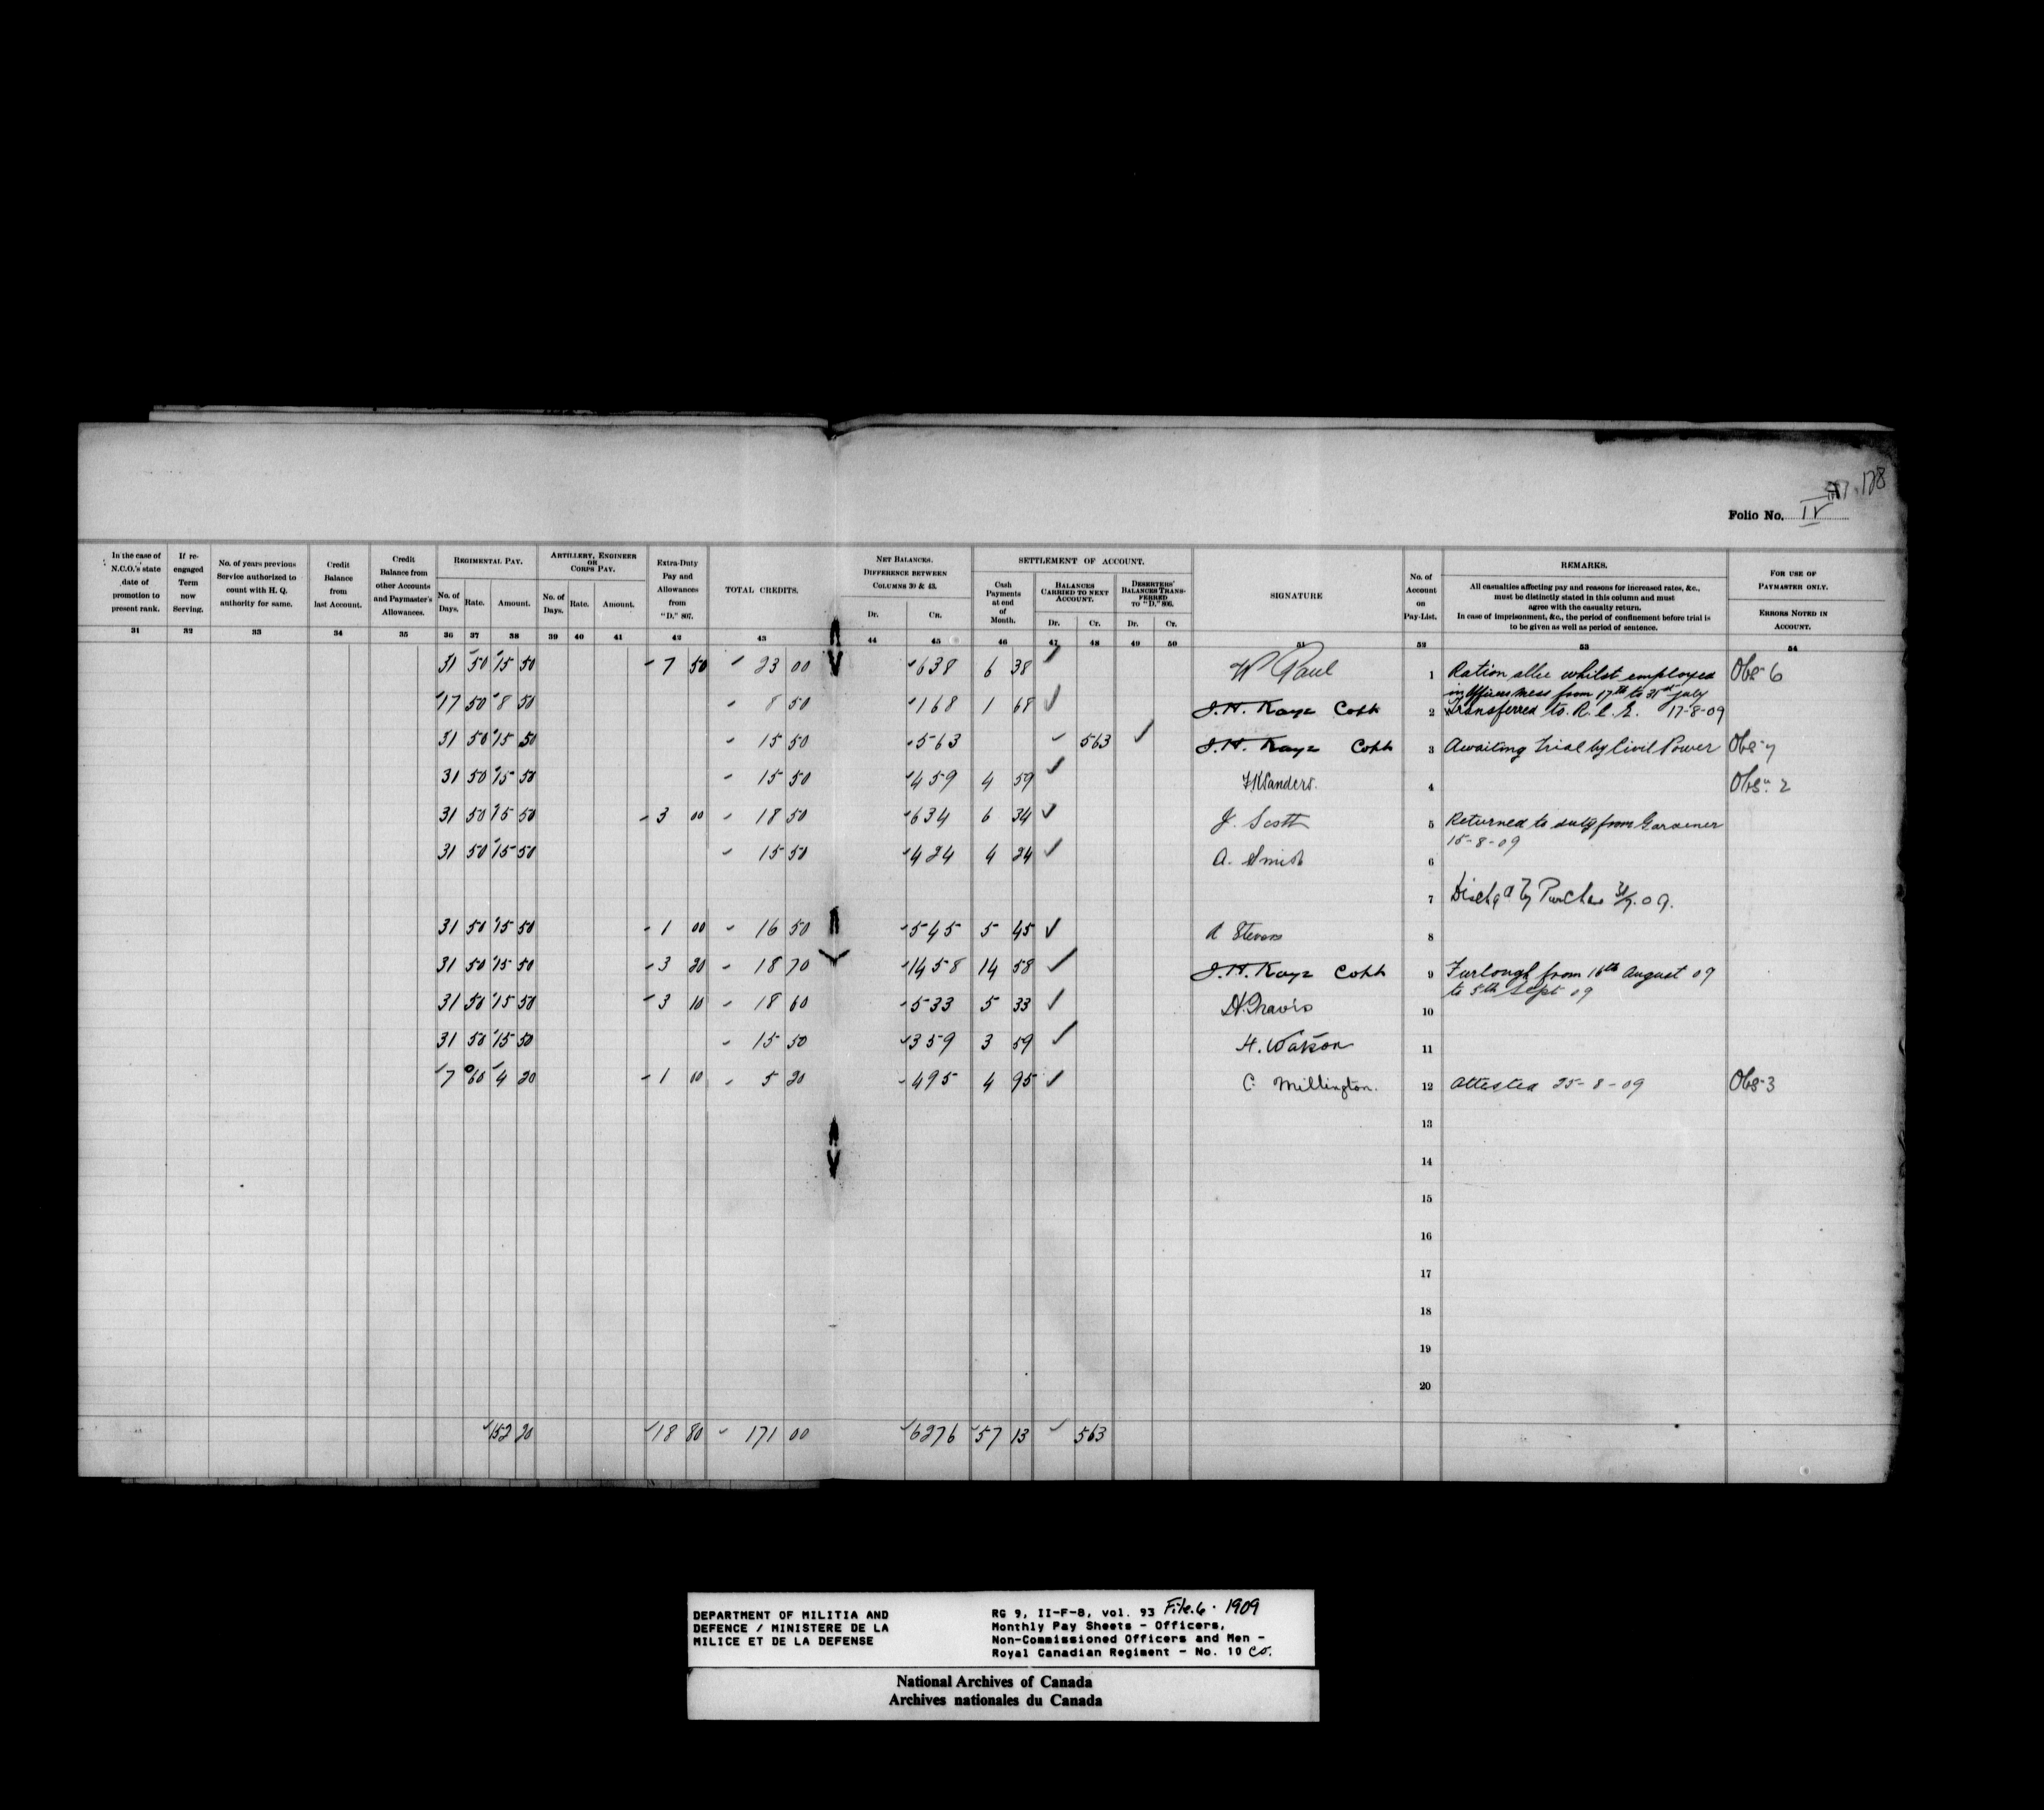 178
Folio No. IV
In the case of N.C.O.'s state date of promotion to present rank.
If re-engaged Term now Serving.
No. of years previous Service authorized to count with H. Q. authority for same.
Credit Balance from last Account.
Credit Balance from other Accounts and Paymaster's Allowances.
REGIMENTAL PAY.
No. of Days. Rate. Amount.
ARTILLERY, ENGINEER OR CORPS PAY.
No. of Days. Rate. Amount.
Extra-Duty Pay and Allowances from "D." 807.
TOTAL CREDITS.
NET BALANCES.
DIFFERENCE BETWEEN COLUMNS 30 & 43.
Dr. Cr.
SETTLEMENT OF ACCOUNT.
Cash Payments at end of Month.
BALANCES CARRIED TO NEXT ACCOUNT.
Dr. Cr.
DESERTERS' BALANCES TRANSFERRED TO "D." 806.
Dr. Cr.
SIGNATURE
No. of Account on Pay-List.
REMARKS.
All casualties affecting pay and reasons for increased rates, &c., must be distinctly stated in this column and must agree with the casualty return.
In case of imprisonment, &c., the period of confinement before trial is to be given as well as period of sentence.
FOR USE OF PAYMASTER ONLY.
ERRORS NOTED IN ACCOUNT.
31 32 33 34 35 36 37 38 39 40 41 42 43 44 45 46 47 48 49 50 51 52 53 54
31 50 15 50 7 50 23 00 6 38 6 38 W Paul 1 Ration allce whilst employed Obs 6
in Officers Mess from 17th to 31st July
17 50 8 50 8 50 1 68 1 68 J.H. Kaye Cobb 2 Transferred to R.C.E. 17-8-09
31 50 15 50 15 50 5 63 5 63 J.H. Kaye Cobb 3 Awaiting trial by Civil Power Obs 7
31 50 15 50 15 50 4 59 4 59 Sanders. 4 Obs 2
31 50 15 50 3 00 18 50 6 34 6 34 J. Scott 5 Returned to duty from Gardener
15-8-09
31 50 15 50 15 50 4 24 4 24 A. Smith 6
7 Dischgd by Purchase 31/7.09.
31 50 15 50 1 00 16 50 5 45 5 45 A Stevens 8
31 50 15 50 3 20 18 70 14 58 14 58 J.H. Kaye Cobb 9 Furlough from 16th August 09
to 5th Sept 09
31 50 15 50 3 10 18 60 5 33 5 33 H. Travis 10
31 50 15 50 15 50 3 59 3 59 H. Watson 11
7 60 4 20 1 00 5 20 4 95 4 95 C. Millington. 12 Attested 25-8-09 Obs 3
13
14
15
16
17
18
19
20
152 20 18 80 171 00 62 76 57 13 5 63
DEPARTMENT OF MILITIA AND
DEFENCE / MINISTERE DE LA
MILICE ET DE LA DEFENSE
RG 9, II-F-8, vol. 93 File.6. 1909
Monthly Pay Sheets - Officers,
Non-Commissioned Officers and Men -
Royal Canadian Regiment - No. 10 Co.
National Archives of Canada
Archives nationales du Canada